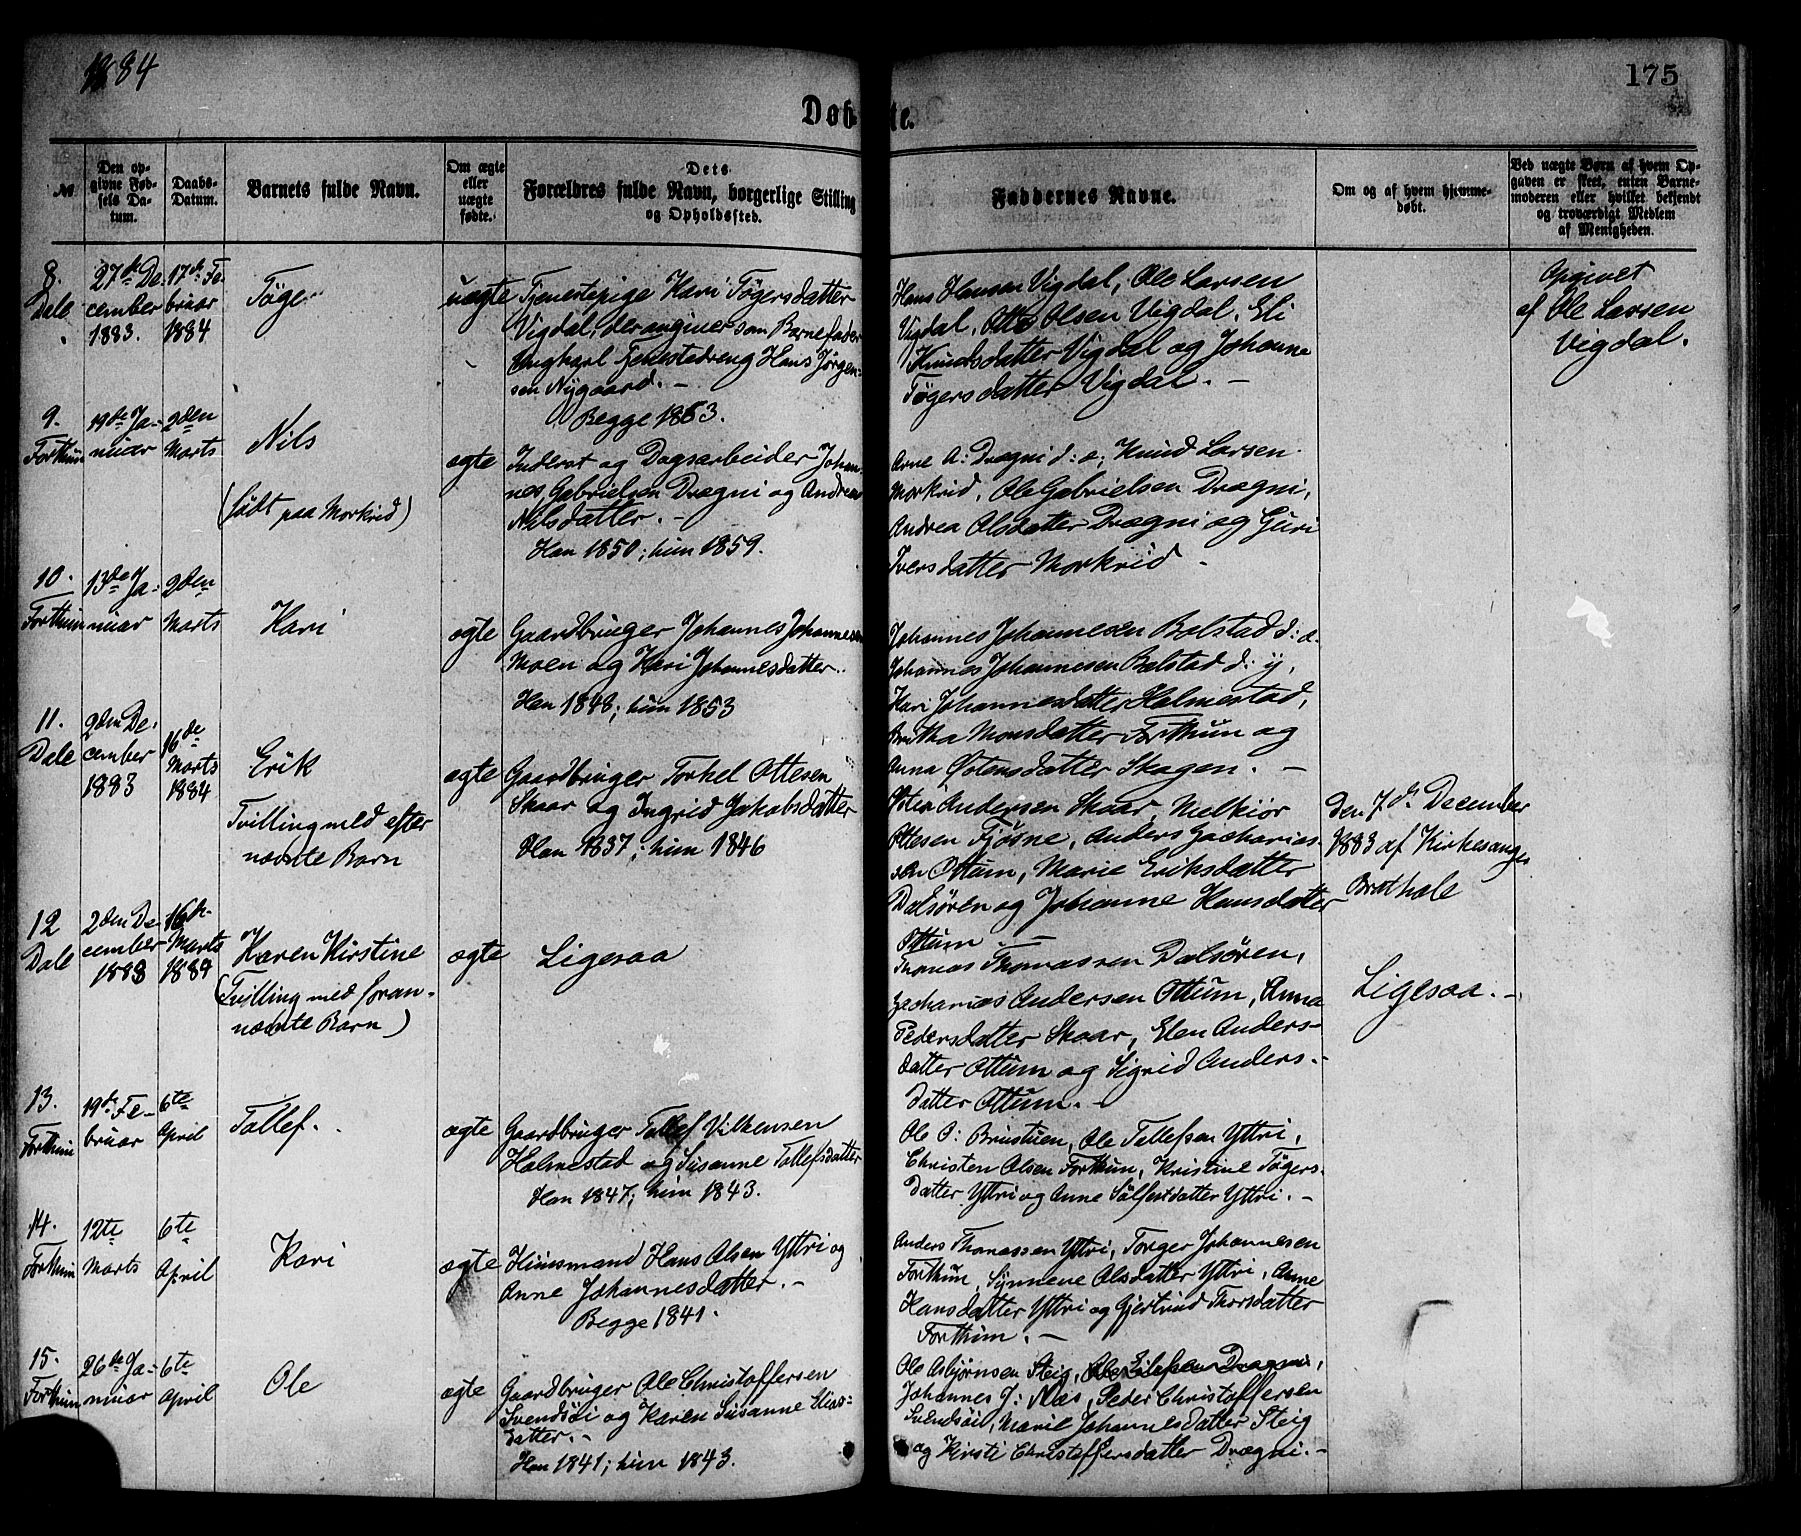 1884
175
Døbte.
№
Den op-
givne Fød-
sels Da-
tum.
Daabs-
Datum.
Barnets fulde Navn.
Om ægte
eller
uægte
fødte.
Dets
Forældres fulde Navn, borgerlige Stilling
og Opholdssted.
Faddernes Navne.
Om og af hvem hjemme-
døbt.
Ved uægte Børn af hvem Op-
gaven er skeet, enten Barne-
moderen eller hvilket bekjendt
og troværdigt Medlem
af Menigheden.
8.
Dale
27de De-
cember
1883.
17de Fe-
bruar
1884
Tøger
uægte
Tjenestepige Kari Tøgersdatter
Vigdal, der angiver som Barnefader
Ungkarl Tjenestedreng Hans Jørgen-
sen Nygaard. —
Begge 1863.
Hans Hansen Vigdal, Ole Larsen
Vigdal, Otto Olsen Vigdal, Eli
Knudsdatter Vigdal og Johanne
Tøgersdatter Vigdal. —
Opgivet
af Ole Larsen
Vigdal.
9.
Forthun
19de Ja-
nuar
2den
Marts
Nils
(født paa Morkrid)
ægte
Inderst og Dagsarbeider Johan-
nes Gabrielsen Drægni og Andrea
Nilsdatter. —
Han 1850; hun 1859.
Arne A: Drægni d: æ; Knud Larsen
Morkrid, Ole Gabrielsen Drægni,
Andrea Olsdatter Drægni og Guri
Iversdatter Morkrid —
10.
Forthun
13de Ja-
nuar
2den
Marts
Kari
ægte
Gaardbruger Johannes Johannesen
Moen og Kari Johannesdatter.
Han 1848; hun 1853
Johannes Johannesen Bolstad d: æ.
Johannes Johannesen Bolstad d: y,
Kari Johannesdatter Holmestad,
Britha Monsdatter Forthun og
Anna Østensdatter Skagen. —
11.
Dale
2den De-
cember
1883
16de
Marts
1884
Erik
Tvilling med efter
nævnte Barn
ægte
Gaardbruger Torkel Ottesen
Skaar og Ingrid Jakobsdatter
Han 1837; hun 1846
Peter Andersen Skaar, Melkiør
Ottesen Fjøsne, Anders Zacharias-
sen Ottum, Marie Eriksdatter
Dalsøren og Johanne Hansdatter
Ottum. —
Den 7de December
1883 af Kirkesanger
12
Dale
2den De-
cember
1883
16de
Marts
1884
Karen Kirstine
(Tvilling med foran-
nævnte Barn)
ægte
Ligesaa
Thomas Thomassen Dalsøren,
Zacharias Andersen Ottum, Anna
Pedersdatter Skaar, Elen Anders-
datter Ottum og Sigrid Anders-
datter Ottum. —
Ligesaa. —
13.
Forthun
19de Fe-
bruar
6te
April
Tollef.
ægte
Gaardbruger Tollef Vilhemsen
Holmestad og Susanne Tollefsdatter
Han 1847; hun 1843.
Ole O: Brustuen, Ole Tollefsen Yttri,
Christen Olsen Forthun, Kristine Tøgers-
datter Yttri og Anne Sølfestdatter Yttri. —
14.
Forthun
12te
Marts
6te
April
Kari
ægte
Huusmand Hans Olsen Yttri og
Anne Johannesdatter. —
Begge 1841.
Anders Thomassen Yttri, Torger Johannesen
Forthun, Synneve Olsdatter Yttri, Anne
Hansdatter Yttri og Gjertrud Thorsdatter
Forthun. —
15.
Forthun
26de Ja-
nuar
6te
April
Ole
ægte
Gaardbruger Ole Christoffersen
Svendsøi og Karen Susanne Elias-
datter. —
Han 1841; hun 1843.
Ole Asbjørnsen Steig, Ole Drægni,
Johannes J: Næs, Peder Christoffersen
Svendsøi, Marie Johannesdatter Steig
og Kirsti Christoffersdatter Drægni. —